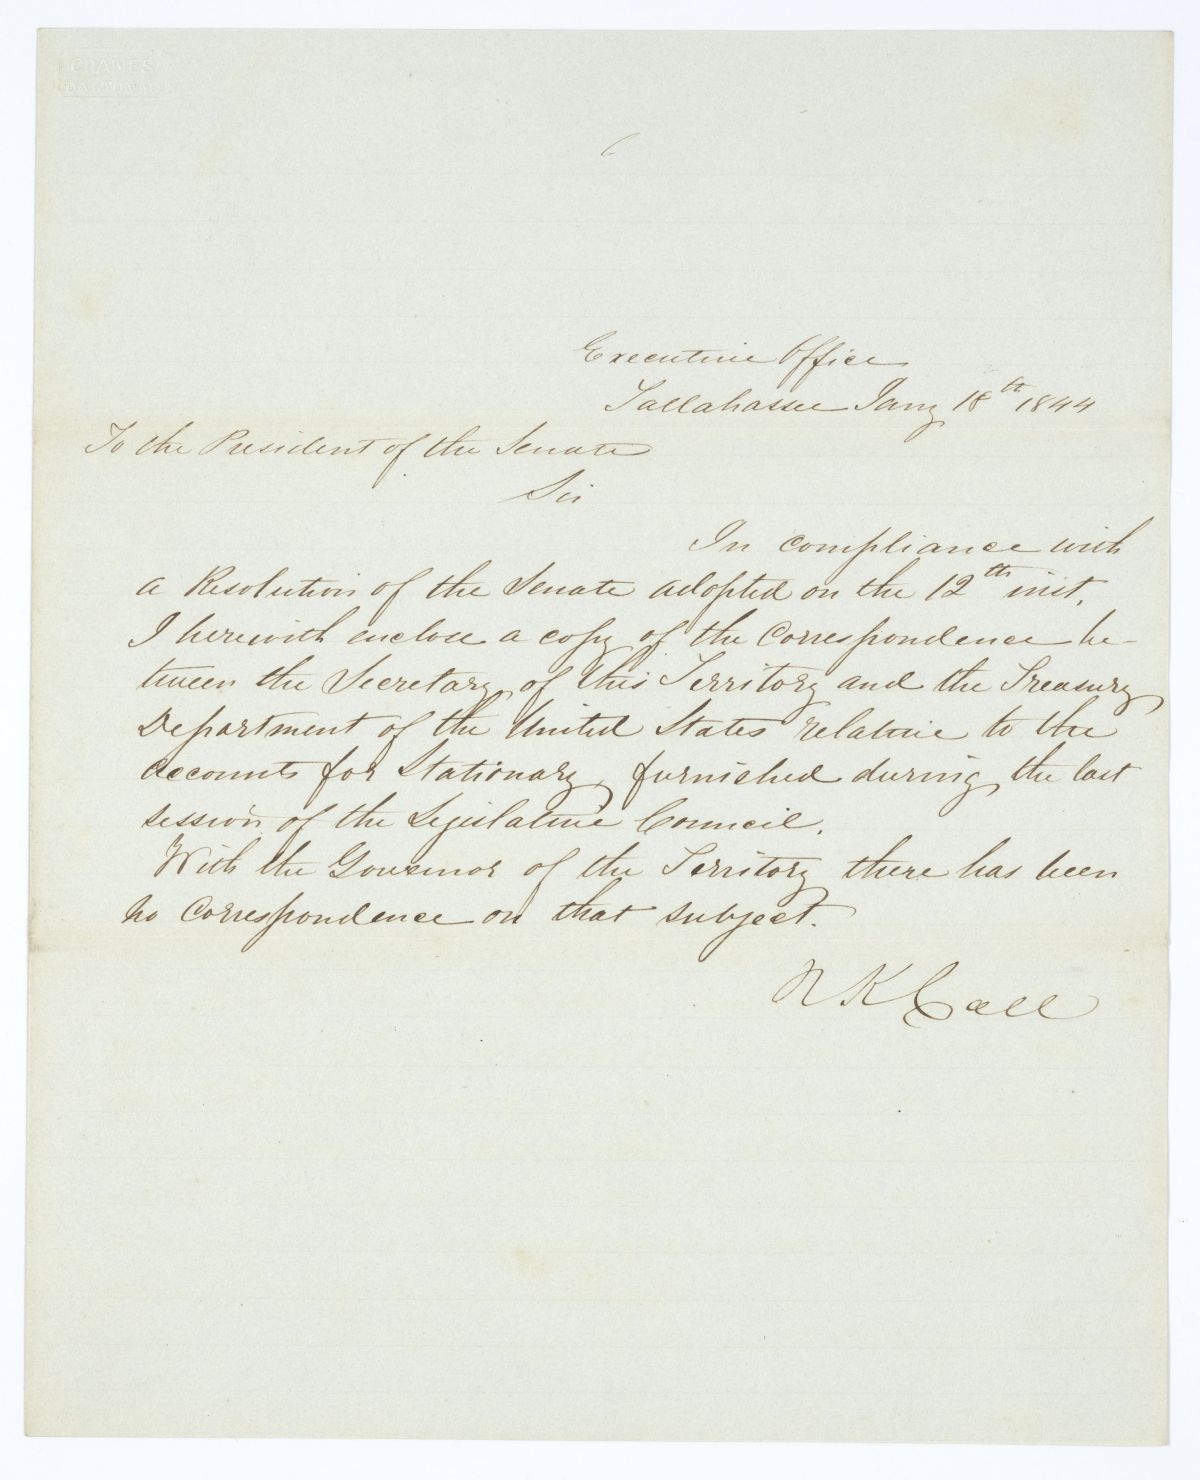 CRANES
DALTON
Executive Office
Tallahassee Jany 18th 1844
To the President of the Senate
Sir
In compliance with
a Resolution of the Senate adopted on the 12th inst,
I herewith enclose a copy of the Correspondence be-
tween the Secretary of this Territory and the Treasury
Department of the United States relative to the
accounts for Stationary, furnished during the last
session of the Legislative Council.
With the Governor of the Territory there has been
no Correspondence on that subject.
R K Call